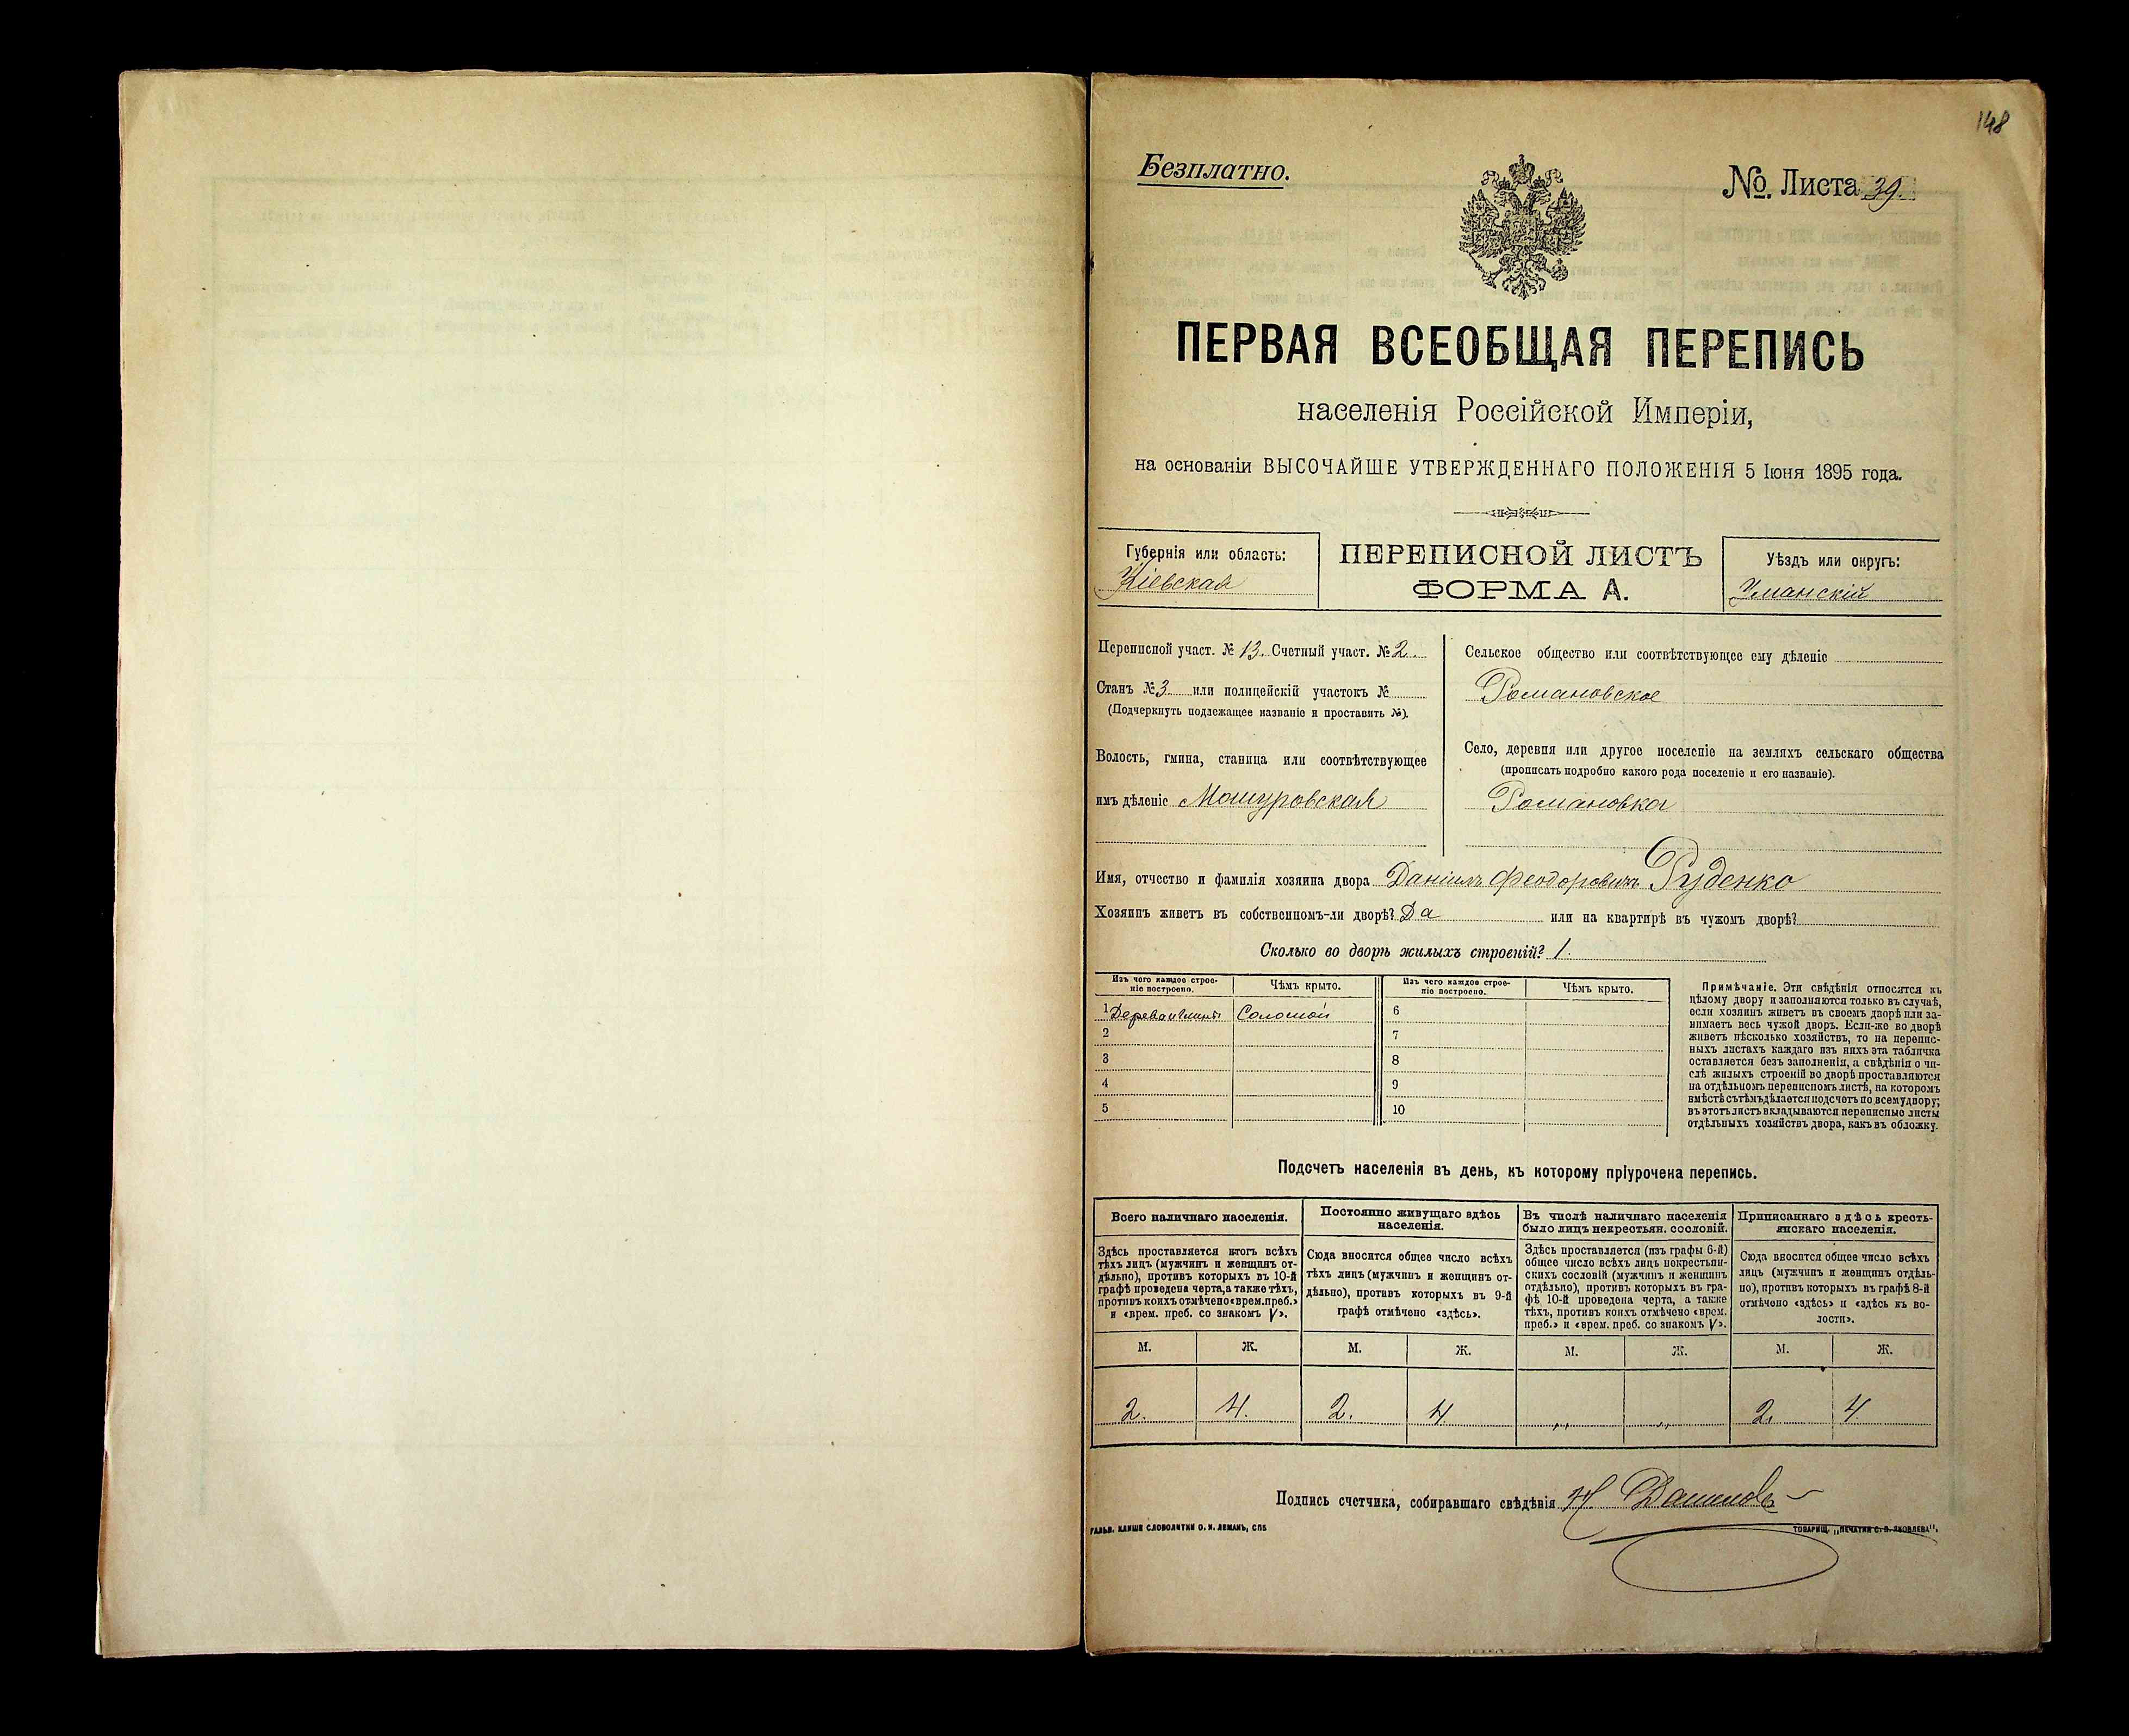 148
Безплатно.
№. Листа 39.
ПЕРВАЯ ВСЕОБЩАЯ ПЕРЕПИСЬ
населенія Россійской Имперіи,
на основаніи ВЫСОЧАЙШЕ УТВЕРЖДЕННАГО ПОЛОЖЕНІЯ 5 Іюня 1895 года.
Губернія или область:
Кіевская
ПЕРЕПИСНОЙ ЛИСТЪ
ФОРМА А.
Уѣздъ или округъ:
Уманскій
Переписной участ. № 13. Счетный участ. № 2.
Станъ № 3 или полицейскій участокъ №
(Подчеркнуть подлежащее названіе и проставить №).
Волость, гмина, станица или соотвѣтствующее
имъ дѣленіе Машуровская
Сельское общество или соотвѣтствующее ему дѣленіе
Романовское
Село, деревня или другое поселеніе на земляхъ сельскаго общества
(прописать подробно какого рода поселеніе и его названіе).
Романовка
Имя, отчество и фамилія хозяина двора Даніилъ Феодоровичъ Руденко
Хозяинъ живетъ въ собственномъ-ли дворѣ? Да или на квартирѣ въ чужомъ дворѣ?
Сколько во дворѣ жилыхъ строеній? 1.
Изъ чего каждое строе-
ніе построено.
Чѣмъ крыто.
Изъ чего каждое строе-
ніе построено.
Чѣмъ крыто.
1 Соломой
2
3
4
5
6
7
8
9
10
Примѣчаніе. Эти свѣдѣнія относятся къ
цѣлому двору и заполняются только въ случаѣ,
если хозяинъ живетъ въ своемъ дворѣ или за-
нимаетъ весь чужой дворъ. Если-же во дворѣ
живетъ нѣсколько хозяйствъ, то на перепис-
ныхъ листахъ каждаго изъ нихъ эта табличка
оставляется безъ заполненія, а свѣдѣнія о чи-
слѣ жилыхъ строеній во дворѣ проставляются
на отдѣльномъ переписномъ листѣ, на которомъ
вмѣстѣ съ тѣмъ дѣлается подсчетъ по всему двору;
въ этотъ листъ вкладываются переписные листы
отдѣльныхъ хозяйствъ двора, какъ въ обложку.
Подсчетъ населенія въ день, къ которому пріурочена перепись.
Всего наличнаго населенія.
Здѣсь проставляется итогъ всѣхъ
тѣхъ лицъ (мужчинъ и женщинъ от-
дѣльно), противъ которыхъ въ 10-й
графѣ проведена черта, а также тѣхъ,
противъ коихъ отмѣчено «врем. преб.»
и «врем. преб. со знакомъ V».
Постоянно живущаго здѣсь
населенія.
Сюда вносится общее число всѣхъ
тѣхъ лицъ (мужчинъ и женщинъ от-
дѣльно), противъ которыхъ въ 9-й
графѣ отмѣчено «здѣсь».
Въ числѣ наличнаго населенія
было лицъ некрестьян. сословій.
Здѣсь проставляется (изъ графы 6-й)
общее число всѣхъ лицъ некрестьян-
скихъ сословій (мужчинъ и женщинъ
отдѣльно), противъ которыхъ въ гра-
фѣ 10-й проведена черта, а также
тѣхъ, противъ коихъ отмѣчено «врем.
преб.» и «врем. преб. со знакомъ V».
Приписаннаго здѣсь кресть-
янскаго населенія.
Сюда вносится общее число всѣхъ
лицъ (мужчинъ и женщинъ отдѣль-
но), противъ которыхъ въ графѣ 8-й
отмѣчено «здѣсь» и «здѣсь къ во-
лости».
М. Ж. М. Ж. М. Ж. М. Ж.
2. 4. 2. 4 „ „ 2. 4.
Подпись счетчика, собиравшаго свѣдѣнія
ГАЛЬВ. КЛИШЕ СЛОВОЛИТНИ О. И. ЛЕМАНЪ, СПБ
ТОВАРИЩ. „ПЕЧАТНЯ С. П. ЯКОВЛЕВА“.